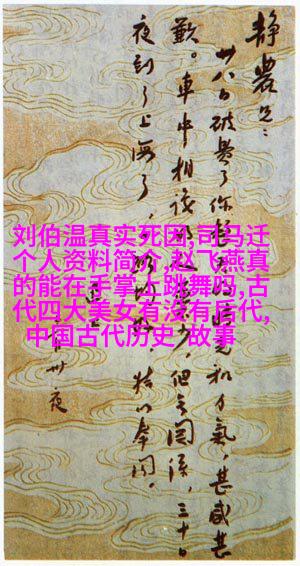 刘伯温真实死因,司马迁
个人资料简介,赵飞燕真
的能在手掌上跳舞吗,古
代四大美女有没有后代,
中国古代历史 故事
静農兄:
廿八日破费了你和力氣,甚感甚
歉。車中相談少,但関係,三十日
夜到了上海了,特以奉聞。
卅夜